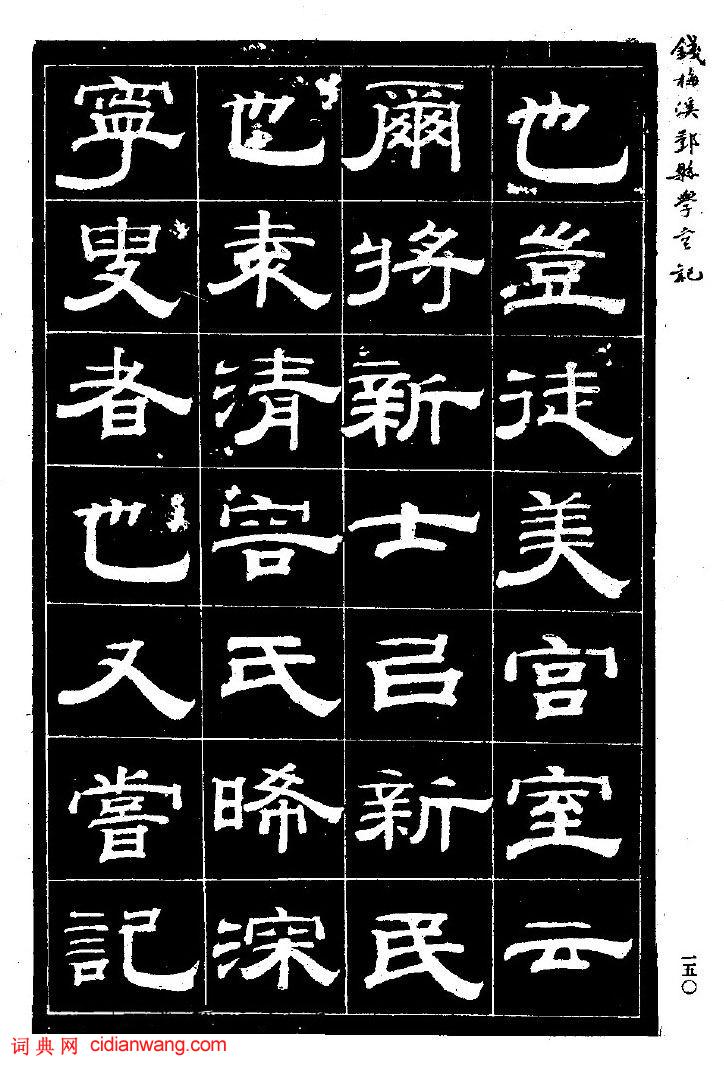 錢梅溪鄞縣學宮記
也豈徒美宮室云
爾將新士㠯新民
也袁清容氏晞深
寧叟者也又嘗記
一五〇
词典网 cidianwang.com